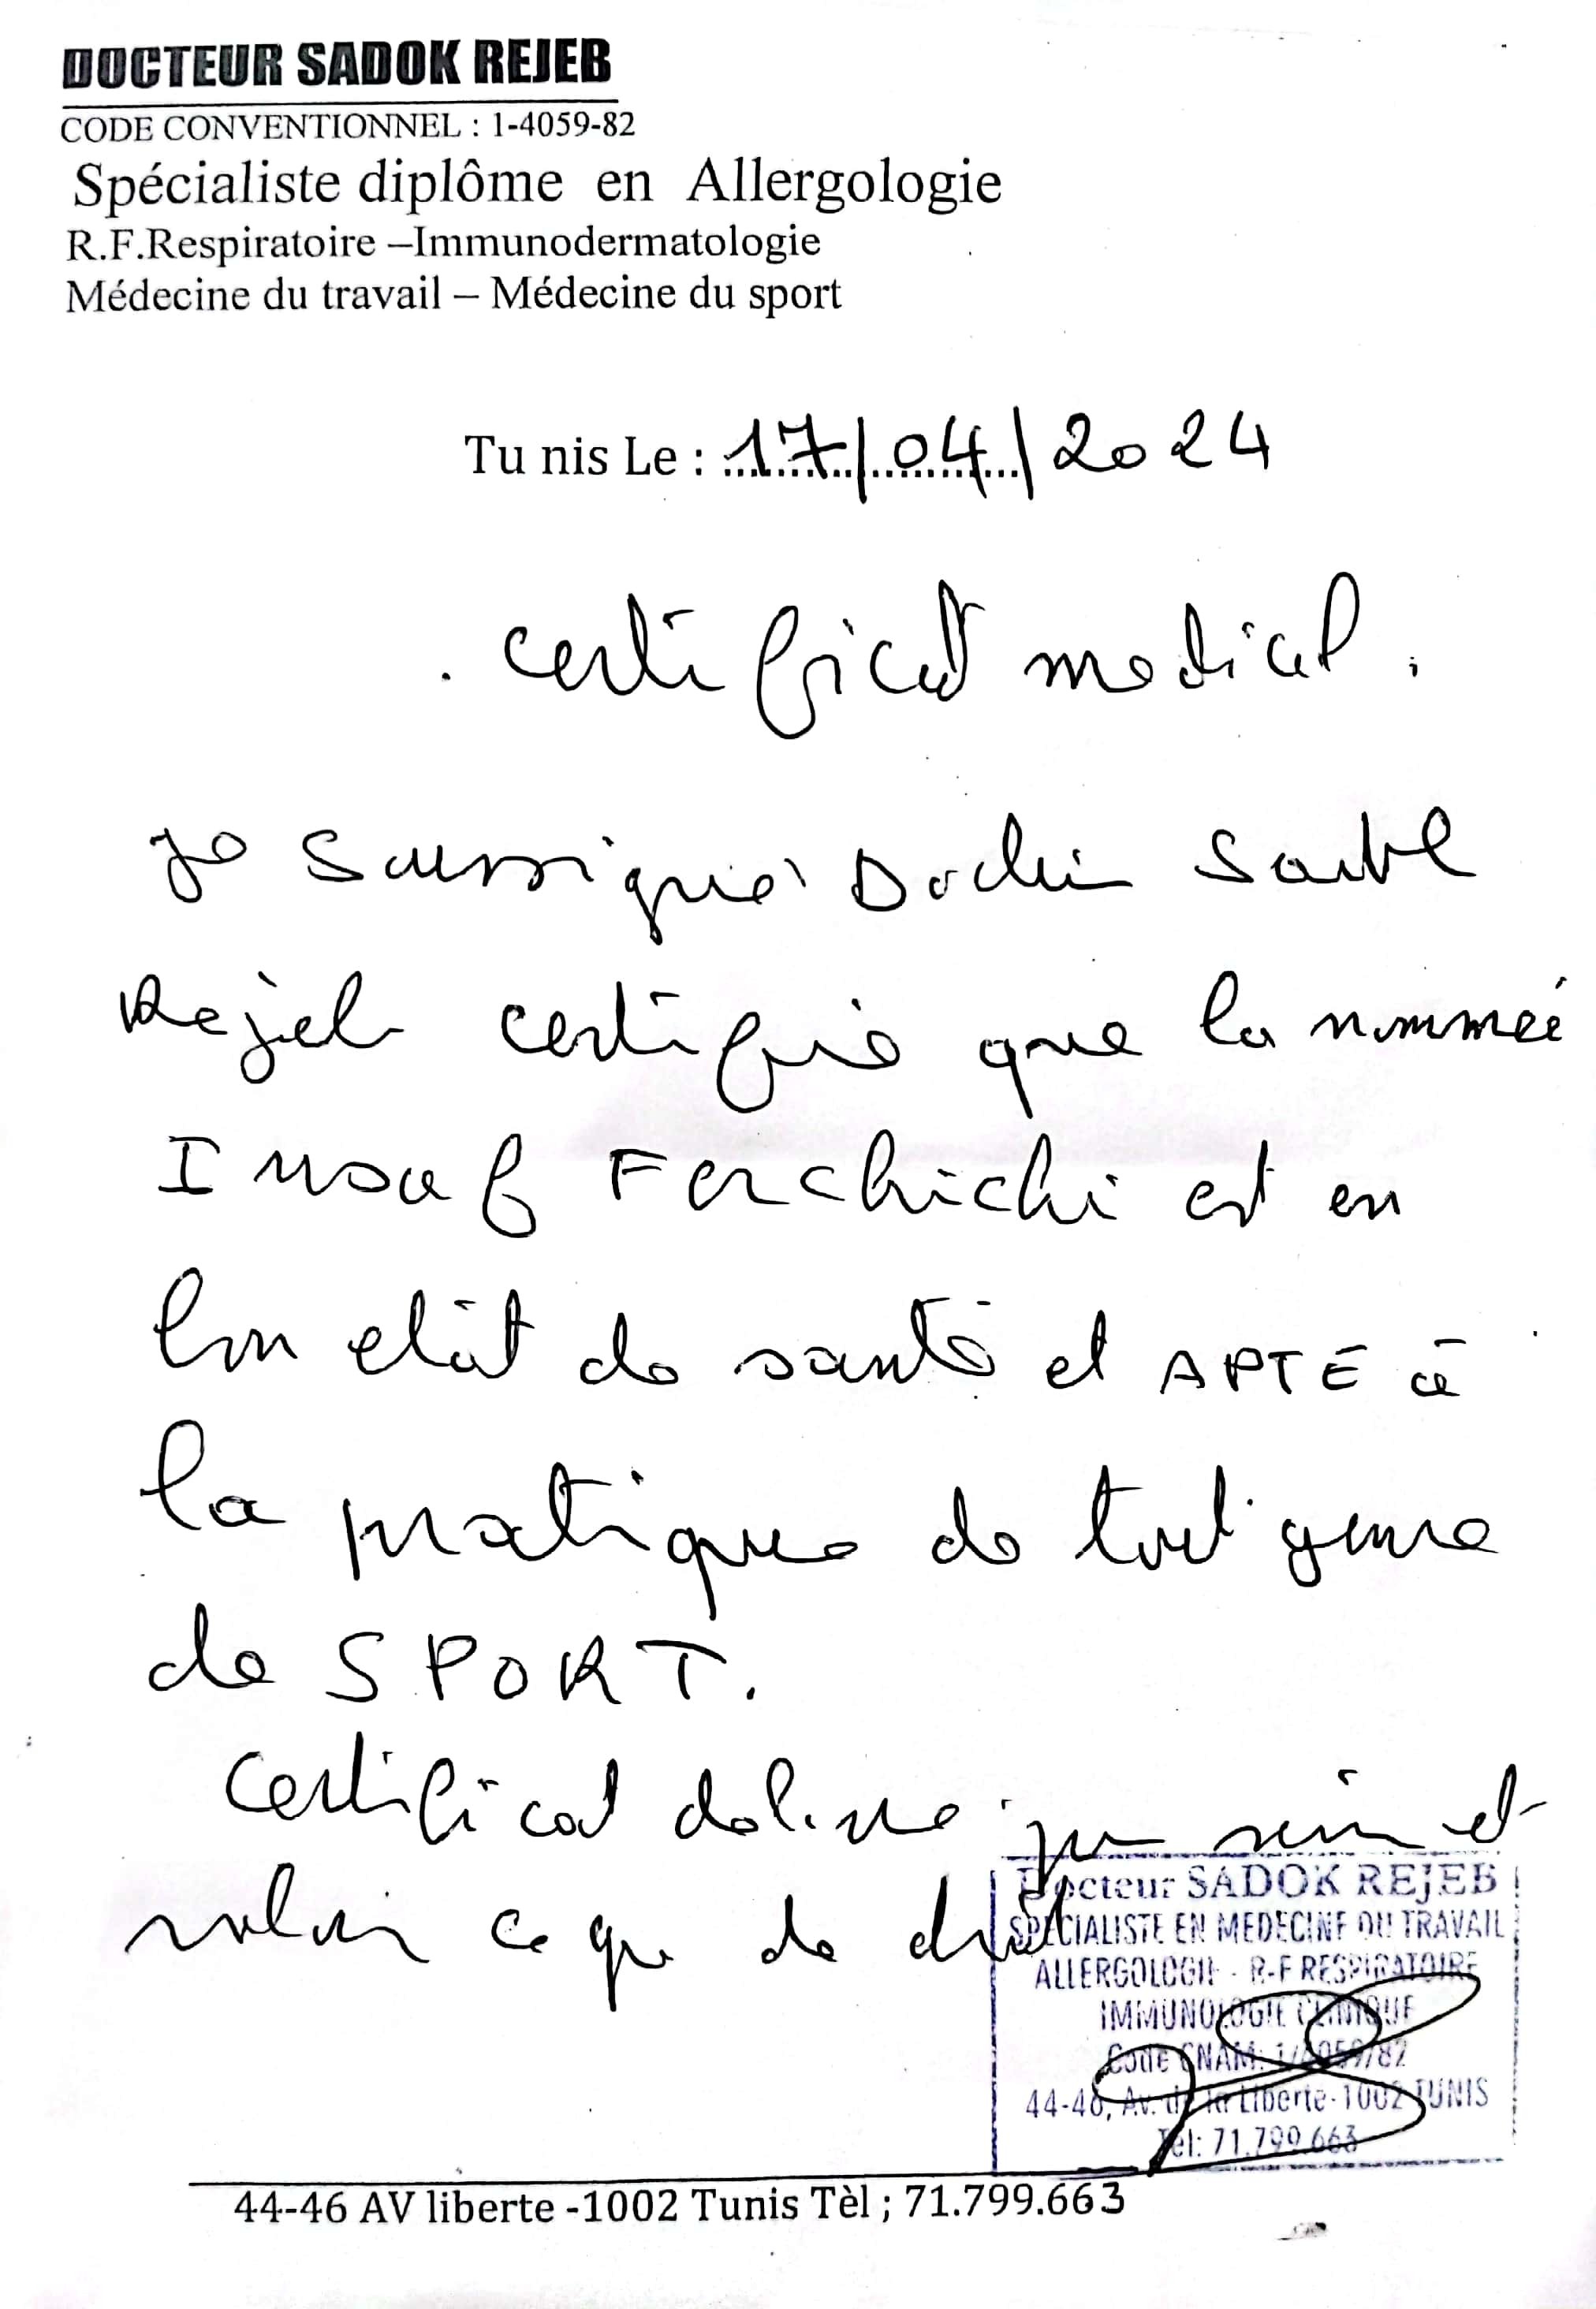 DOCTEUR SADOK REJEB
CODE CONVENTIONNEL : 1-4059-82
Spécialiste diplôme en Allergologie
R.F.Respiratoire –Immunodermatologie
Médecine du travail – Médecine du sport
Tu nis Le : 17/04/2024
certificat medical
je soussigné Docteur Sadok
Rejeb certifie que la nommée
Insaf Ferchichi est en
bon etat de santé et APTE à
la pratique de tout genre
de SPORT.
Certificat delivré pour servir et
valoir ce que de droit
Docteur SADOK REJEB
SPECIALISTE EN MEDECINE DU TRAVAIL
ALLERGOLOGIE - R-F RESPIRATOIRE
IMMUNOLOGIE CLINIQUE
Code CNAM: 1/4059/82
44-46, Av. de la Liberte-1002 TUNIS
Tel: 71.799.663
44-46 AV liberte -1002 Tunis Tèl ; 71.799.663